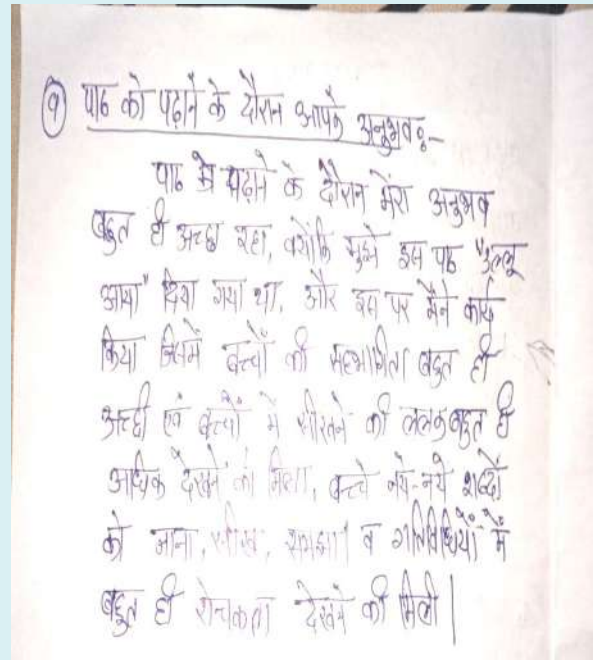 ① पाठ को पढ़ाने के दौरान आपके अनुभवः-
पाठ को पढ़ाने के दौरान मेरा अनुभव
बहुत ही अच्छा रहा, क्योंकि मुझे इस पाठ "उल्लू
आया" दिया गया था, और इस पर मैंने कार्य
किया जिसमें बच्चों की सहभागिता बहुत ही
अच्छी एवं बच्चों में सीखने की ललक बहुत ही
अधिक देखने को मिला, बच्चे नये-नये शब्दों
को जाना, सीखा, समझा व गतिविधियों में
बहुत ही रोचकता देखने की मिली।